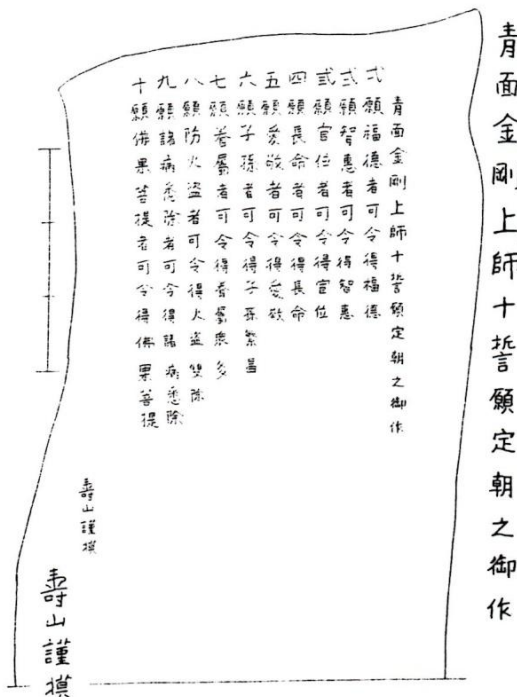 青面金剛上師十誓願定朝之御作
青面金剛上師十誓願定朝之御作
弌願福德者可令得福德
弍願智惠者可令得智惠
弎願官位者可令得官位
四願長命者可令得長命
五願愛敬者可令得愛敬
六願子孫者可令得子孫繁昌
七願眷屬者可令得眷屬衆多
八願防火盜者可令得火盜雙除
九願諸病悉除者可令得諸病悉除
十願佛果菩提者可令得佛果菩提
壽山謹摸
壽山謹摸